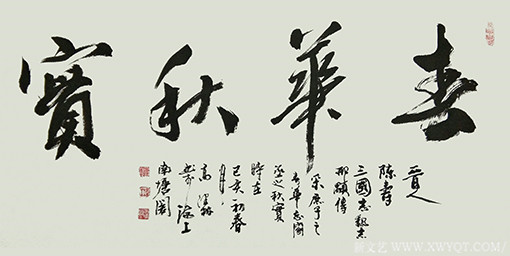 春華秋實
晉人
陳壽
三國志魏志
邢顒傳
采庶子之
春華忘家
丞之秋實
時在
己亥初春
月
高
海上
南塘閣
WWW.XWYQT.COM